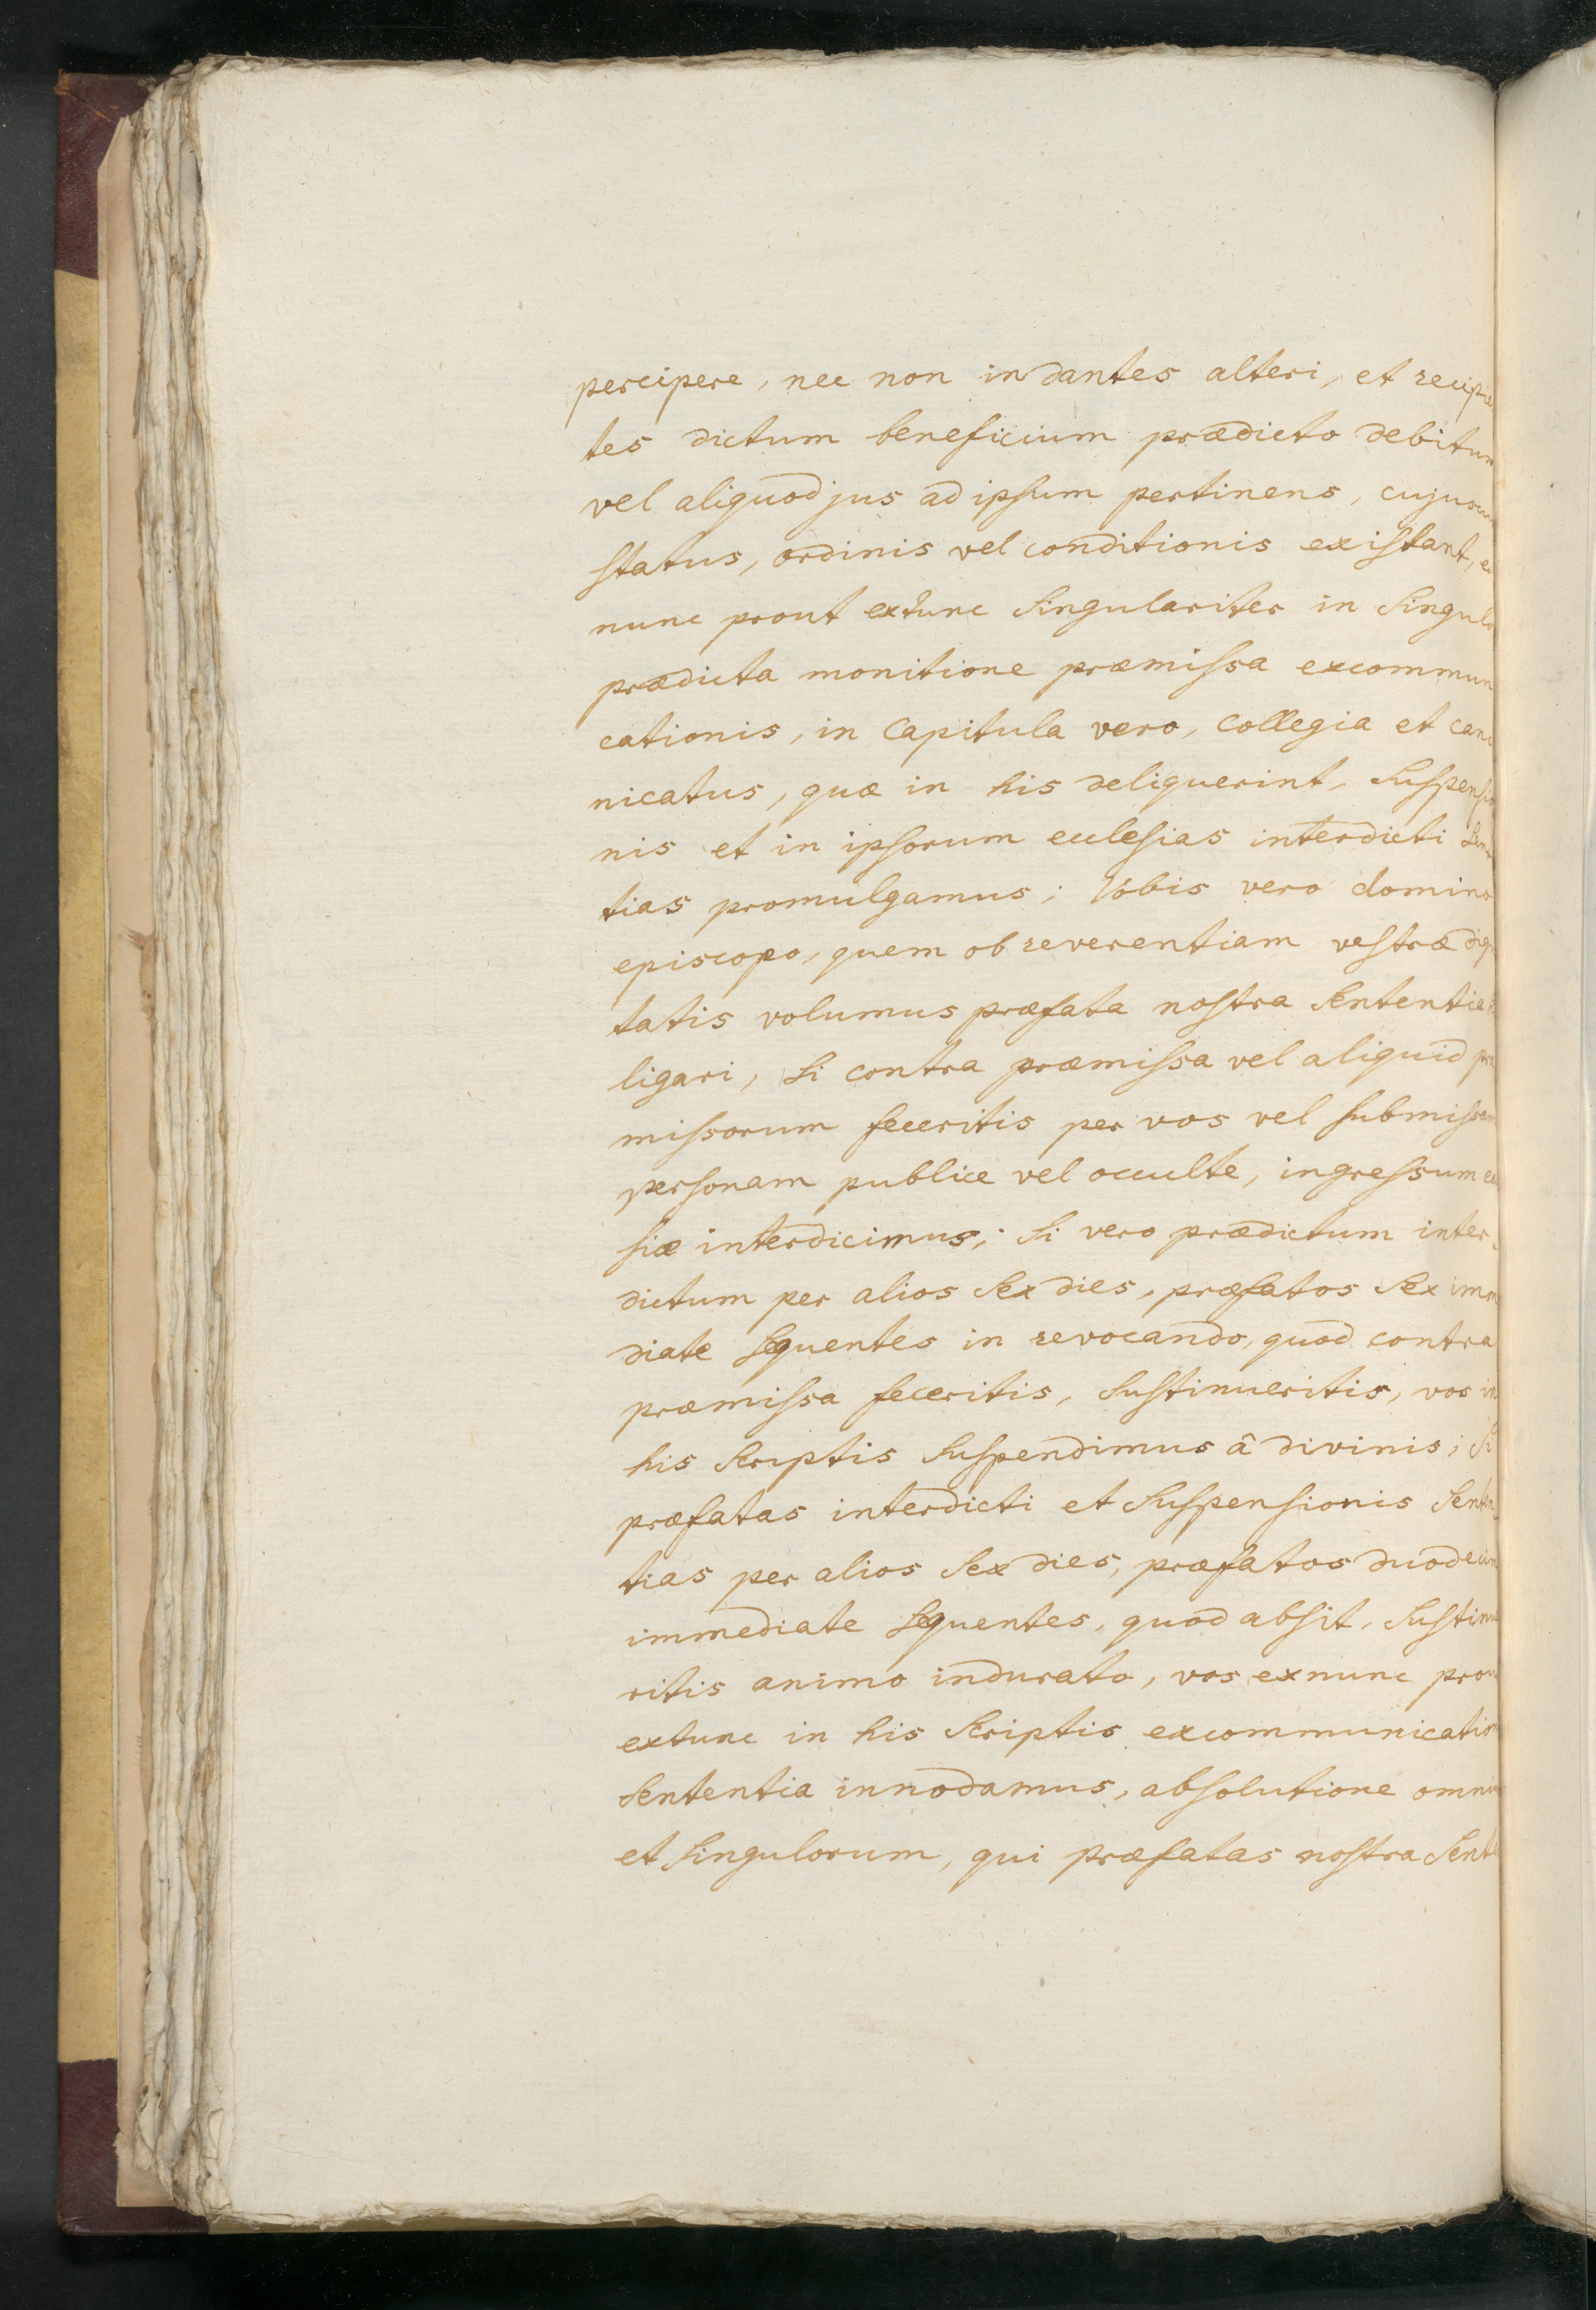 percipere, nec non in dantes alteri, et recipie
tes dictum beneficium prædicto debitum
vel aliquod jus ad ipsum pertinens, cujuscu
status, ordinis vel conditionis existant, e
nunc prout extunc Singulariter in Singulo
prædicta monitione præmissa excommun
cationis, in Capitula vero, Collegia et cano
nicatus, quæ in his deliquerint, Suspensio
nis et in ipsorum ecclesias interdicti Sen
tias promulgamus; Vobis vero domino
episcopo, quem ob reverentiam vestræ dig
tatis volumus præfata nostra Sententia
ligari, Si contra præmissa vel aliquid præ
missorum feceritis per vos vel submissam
personam publice vel occulte, ingressum ec
siæ interdicimus; Si vero prædictum inter
dictum per alios Sex dies, præfatos Sex imm
diate Sequentes in revocando, quod contra
præmissa feceritis, Sustinueritis, vos in
his Scriptis Suspendimus â divinis; Si
præfatas interdicti et Suspensionis Senten
tias per alios Sex dies, præfatos duodecim
immediate Sequentes, quod absit, Sustinue
ritis animo indurato, vos exnunc prou
extunc in his Scriptis excommunicatio
Sententia innodamus, absolutione omni
et Singulorum, qui præfatas nostra Sent